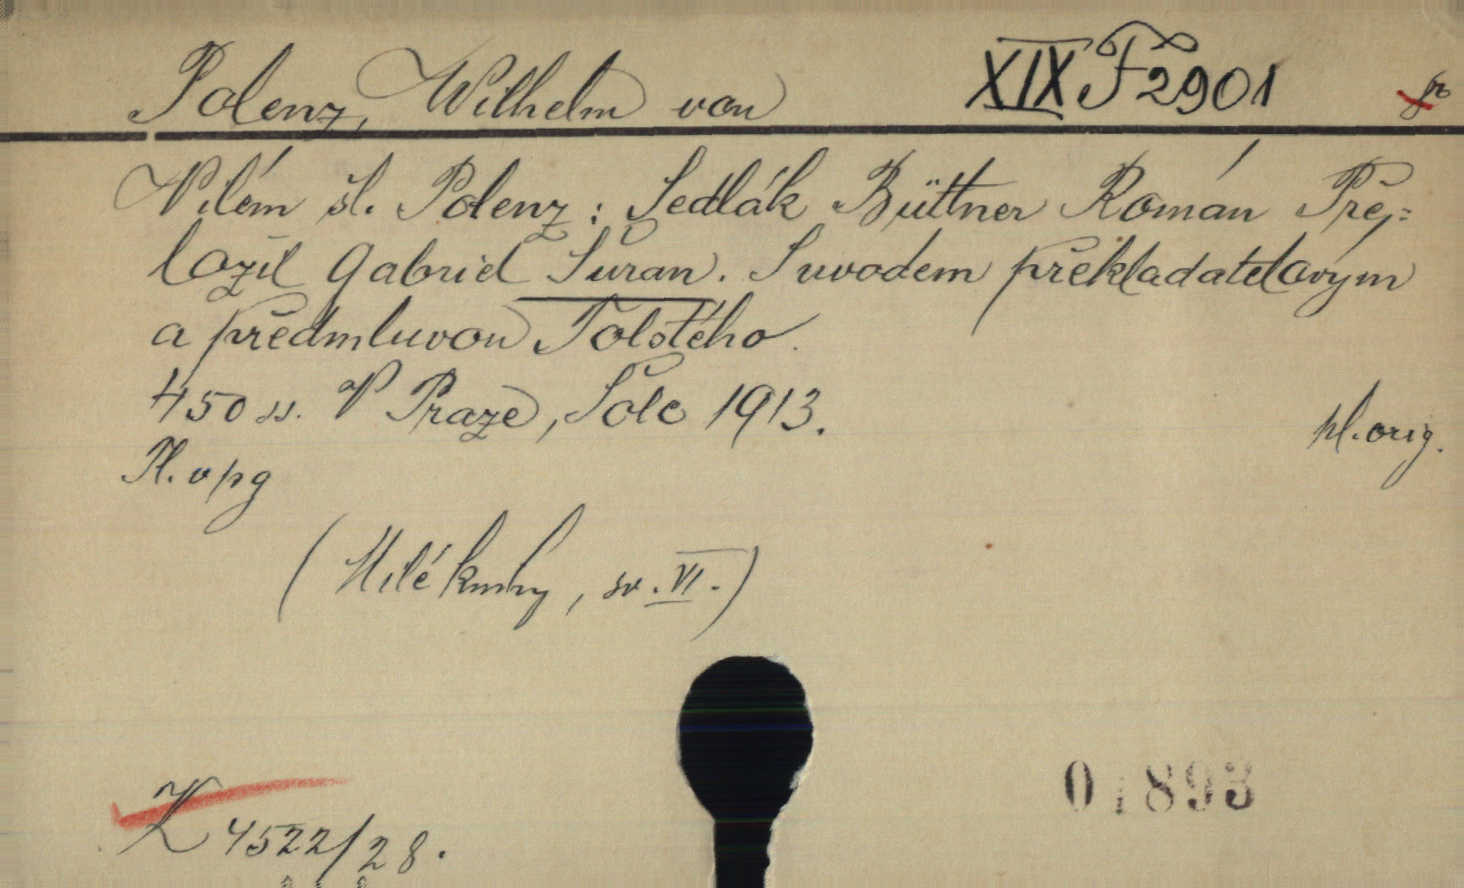 Polenz, Wilhelm von XIX F 2901
Vilém šl. Polenz: Sedlák Büttner Román Pře-
ložil Gabriel Šuran. S úvodem překladatelovým
a předmluvou Tolstého.
450 ss. V Praze, Šolc 1913.
pl. orig.
Pl. vpg
(Milé knihy, sv. VI.)
01893
K 4522/28.